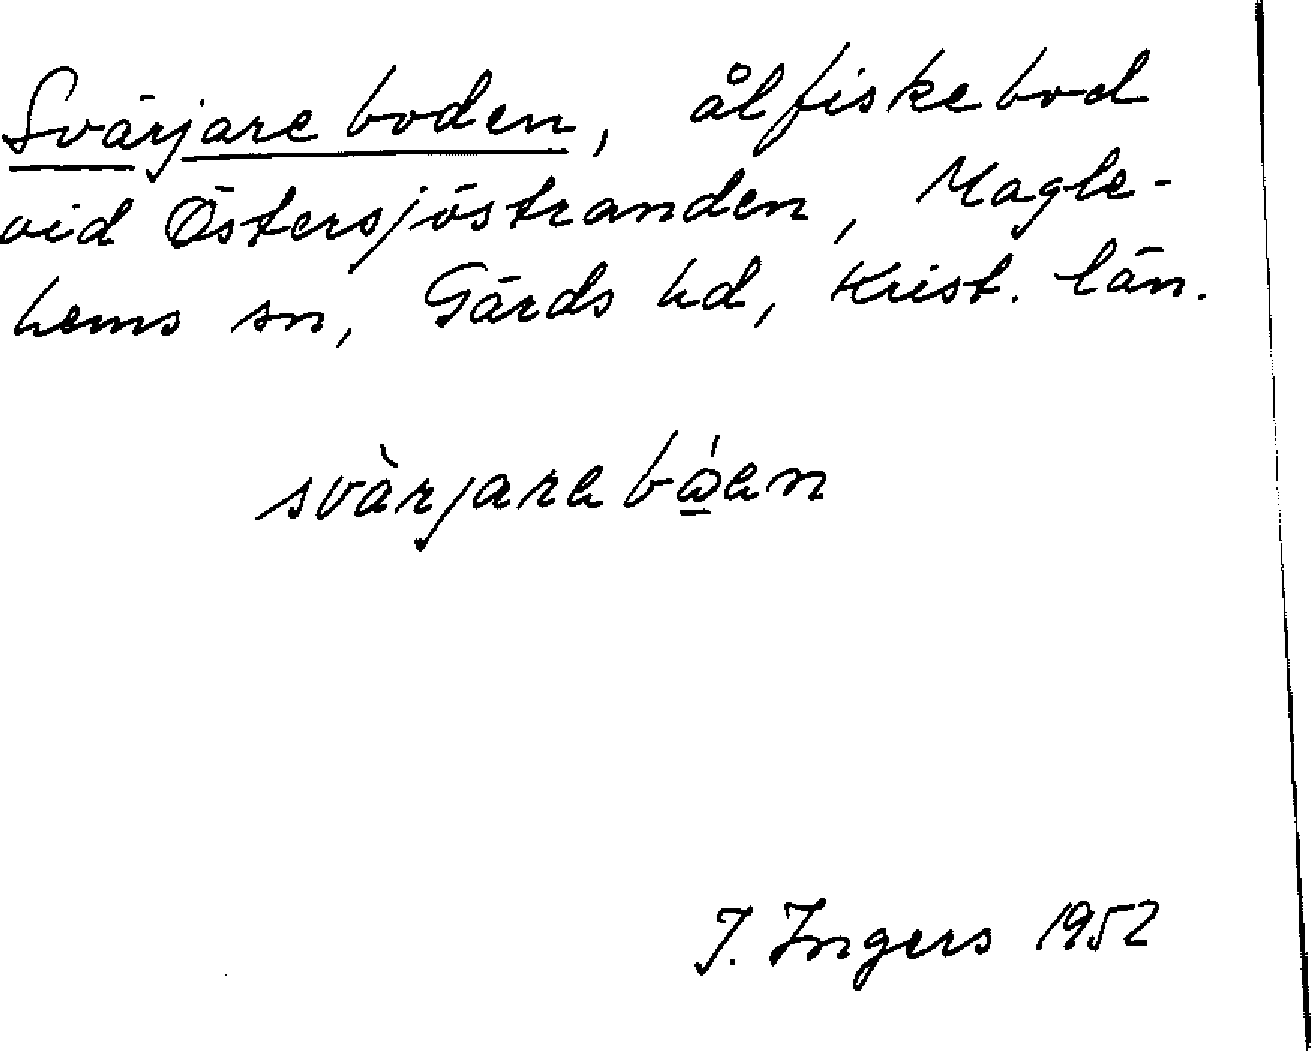 Svärjareboden, ålfiskebod
vid Östersjöstranden, Magle-
hems sn, Gärds hd, Krist. län.
svàrjarebώ̲en
I. Ingers 1952